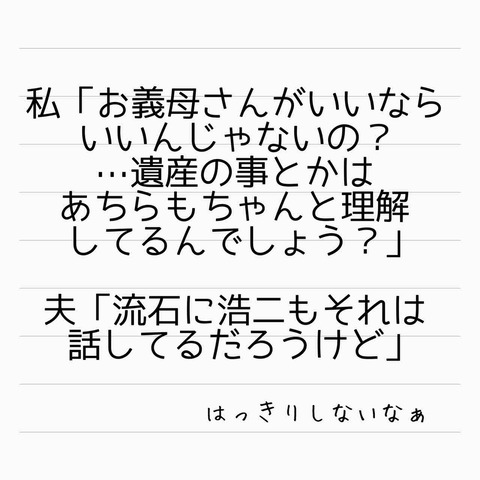 私「お義母さんがいいなら
いいんじゃないの？
…遺産の事とかは
あちらもちゃんと理解
してるんでしょう？」
夫「流石に浩二もそれは
話してるだろうけど」
はっきりしないなぁ